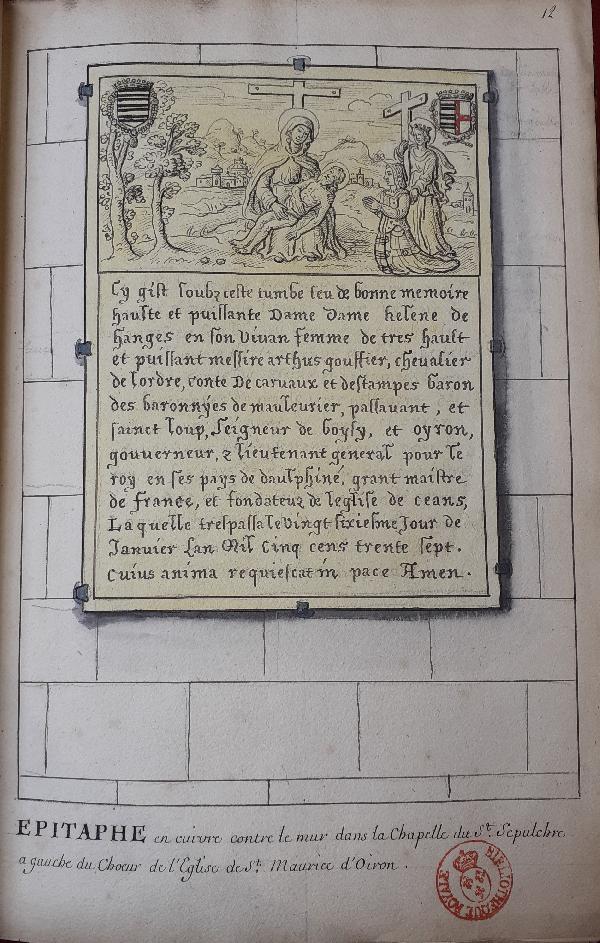 12
Cy gist soubz ceste tumbe feu de bonne memoire
haulte et puissante Dame Dame helene de
hanges en son vivan femme de tres hault
et puissant messire arthus gouffier, chevalier
de lordre, conte De carvaux et destampes baron
des baronnyes de mauleurier, passavant, et
sainct loup, seigneur de boysy, et oyron,
gouverneur, & lieutenant general pour le
roy en ses pays de daulphine, grant maistre
de france, et fondateur de leglise de ceans,
Laquelle trespassa le vingt sixiesme Jour de
Janvier Lan Mil Cinq cens trente sept.
Cuius anima requiescat in pace Amen.
EPITAPHE en cuivre contre le mur dans la Chapelle du St. Sepulchre
a gauche du Choeur de l'Eglise de St. Maurice d'Oiron.
BIBLIOTHEQUE ROYALE